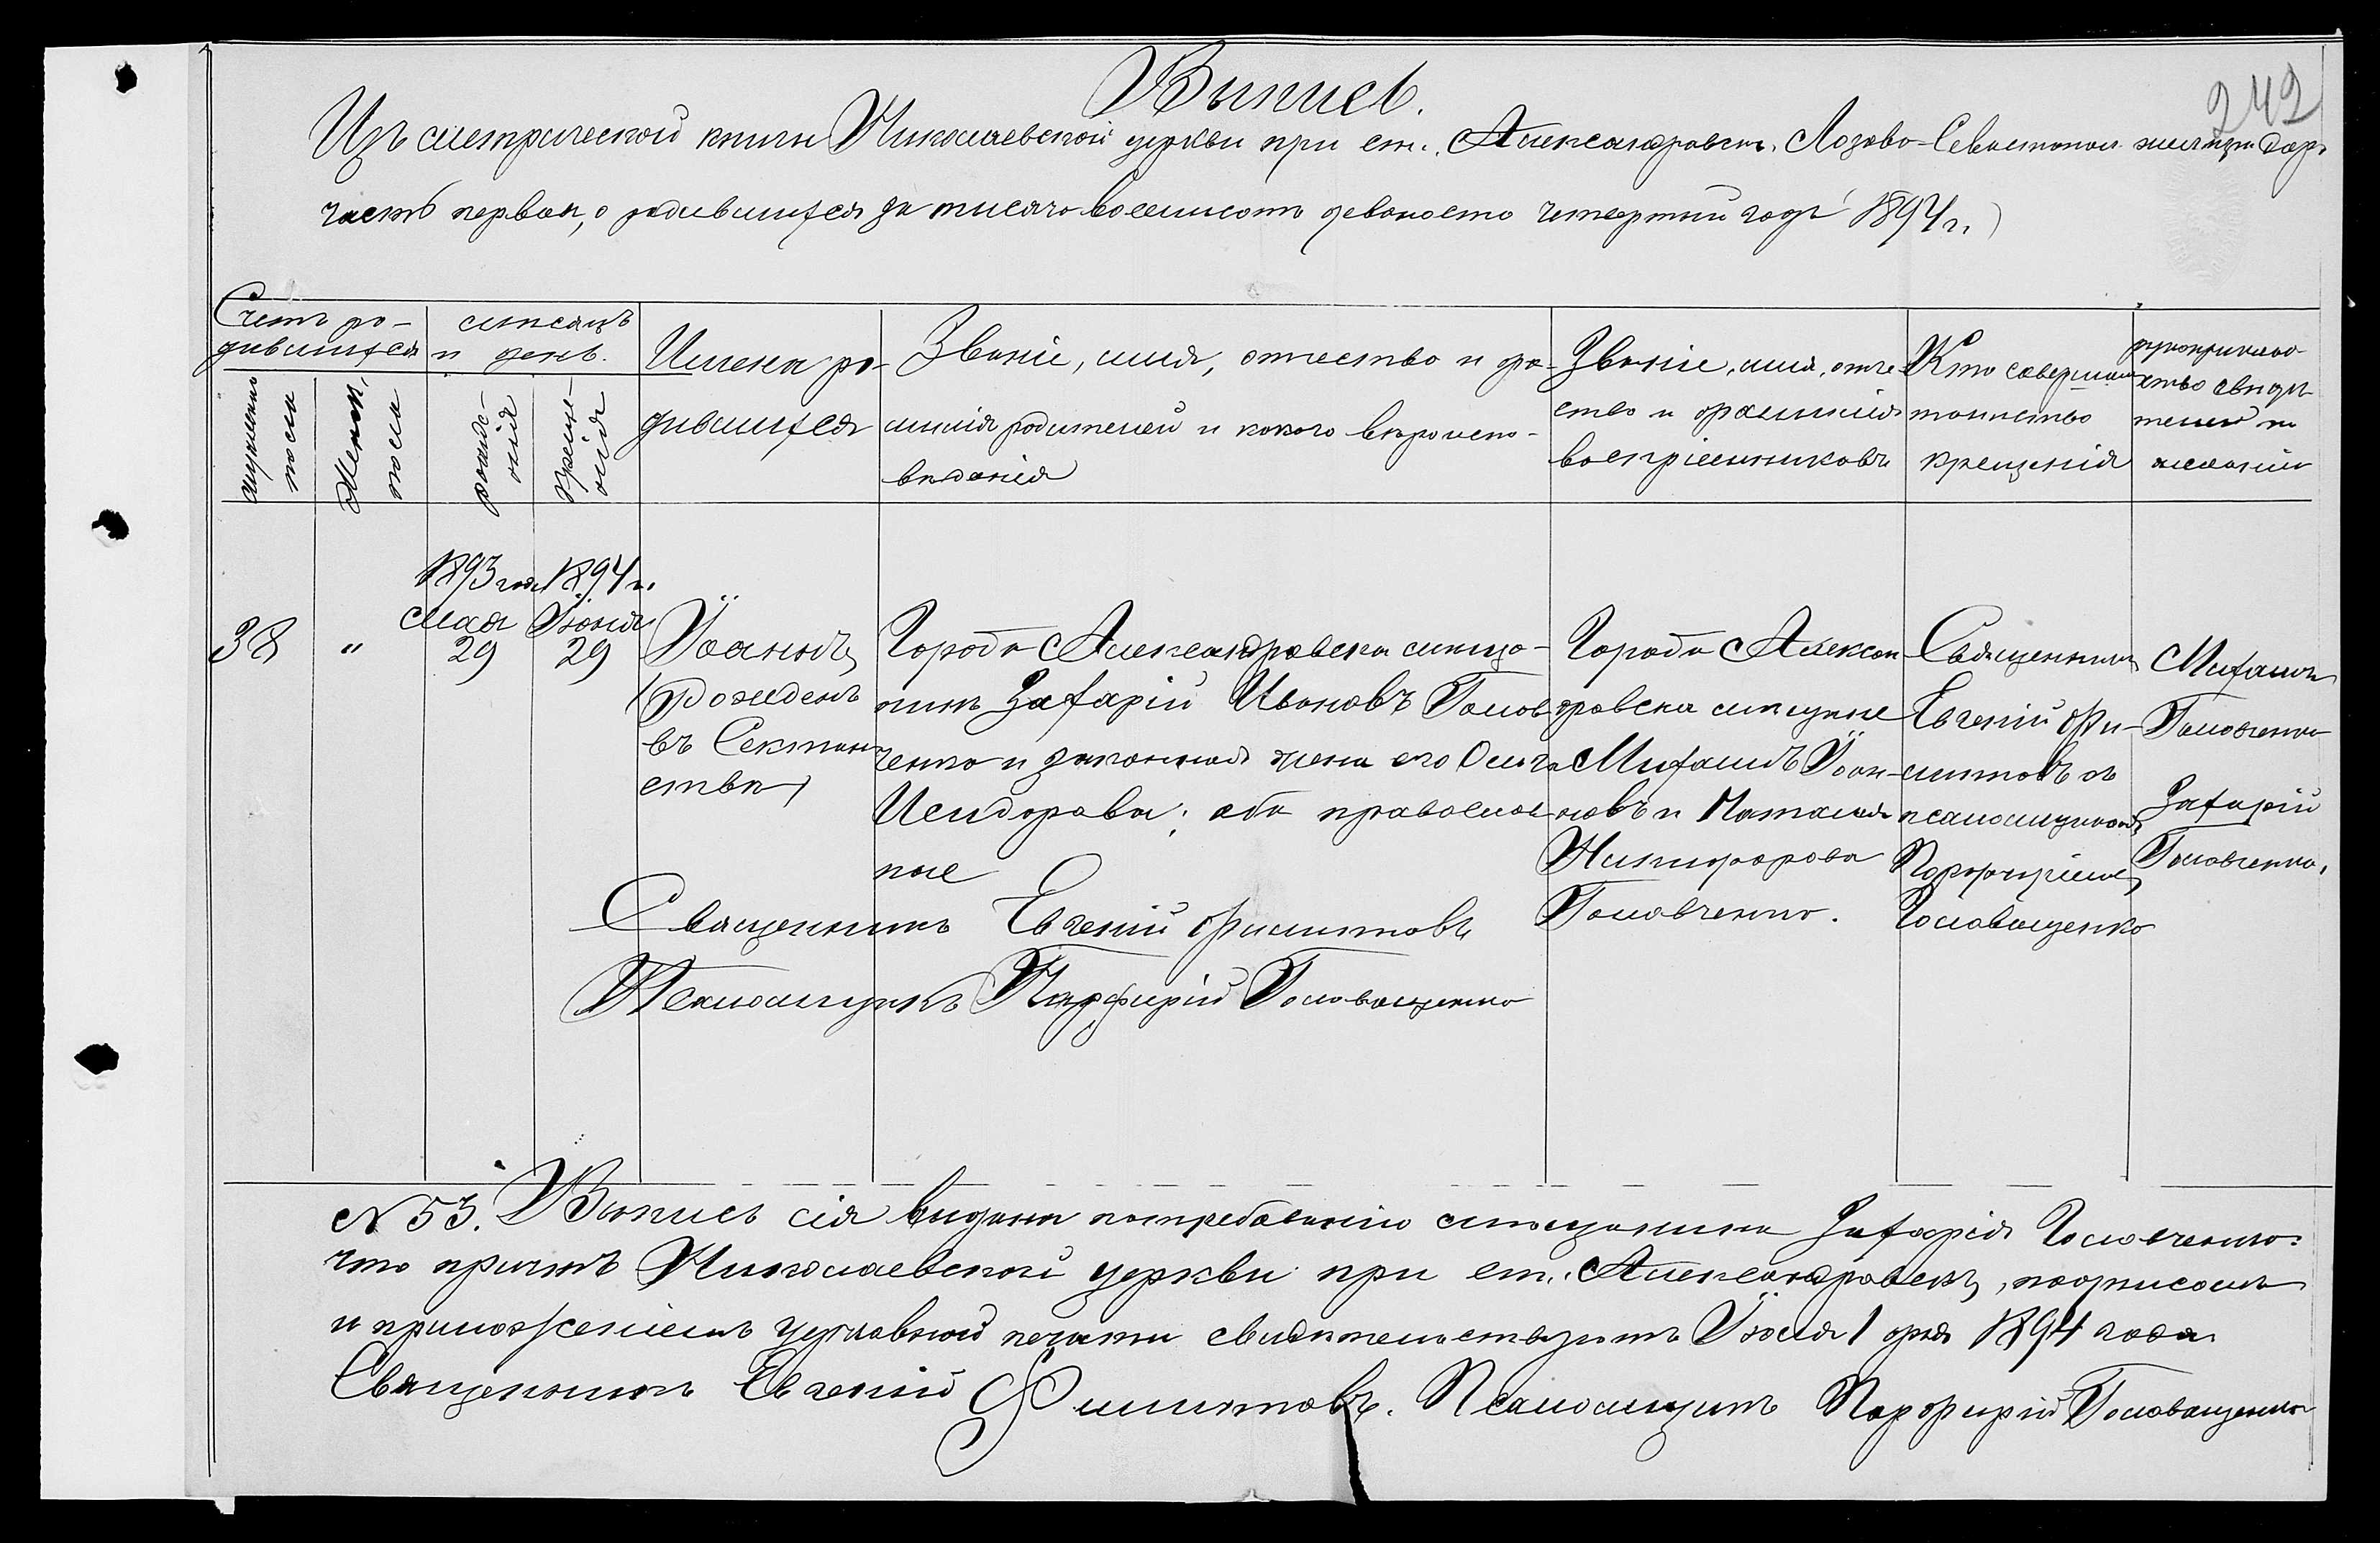 242
Выпись.
Изъ метрической книги Николаевской церкви при ст. Александровскъ, Лозово-Севастопол. желѣзн. дор.
часть первая, о родившихся за тысяча восемьсотъ девяносто четвертый годъ (1894 г.)
Счетъ ро-
дившихся
мужеска
пола
Женск.
пола
мѣсяцъ
и день.
рожде-
нія
креще-
нія
Имена ро-
дившихся
Званіе, имя, отчество и фа-
милія родителей и какого вѣроиспо-
вѣданія
Званіе, имя, отче-
ство и фамилія
воспріемниковъ
Кто совершалъ
таинство
крещенія
рукоприклад-
ство свидѣ-
телей по
желанію
38
"
1893 года
Мая
29
1894 г.
Іюня
29
Іоаннъ
(Рожденъ
въ Сектан-
ствѣ)
Города Александровска мѣща-
нинъ Захарій Ивановъ Голов-
ченко и законная жена его Ольга
Исидорова; оба православ-
ные
Города Алексан-
дровска мѣщане
Михаилъ Іоан-
новъ и Наталія
Никифорова
Головченко.
Священникъ
Евгеній Фи-
липповъ съ
псаломщикомъ
Порфиріемъ
Головащенко
Михаилъ
Головченко
Захарій
Головченко.
Священникъ Евгеній Филипповъ
Псаломщикъ Порфирій Головащенко
№ 53. Выпись сія выдана по требованію мѣщанина Захарія Головченко
что причтъ Николаевской церкви при ст. Александровскъ, подписомъ
и приложеніемъ церковной печати свидѣтельствуетъ Іюля 1 дня 1894 года
Священникъ Евгеній Филипповъ. Псаломщикъ Порфирій Головащенко